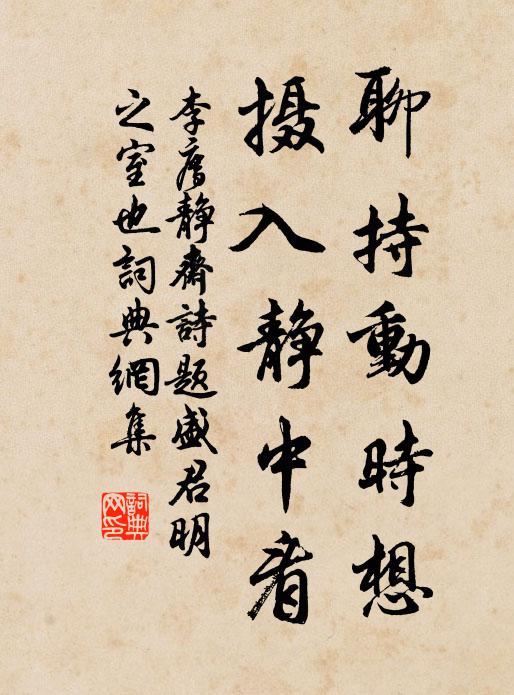 聊持動時想
摄入静中看
李廌静齋詩題盛君明
之室也詞典網集
詞典
网印